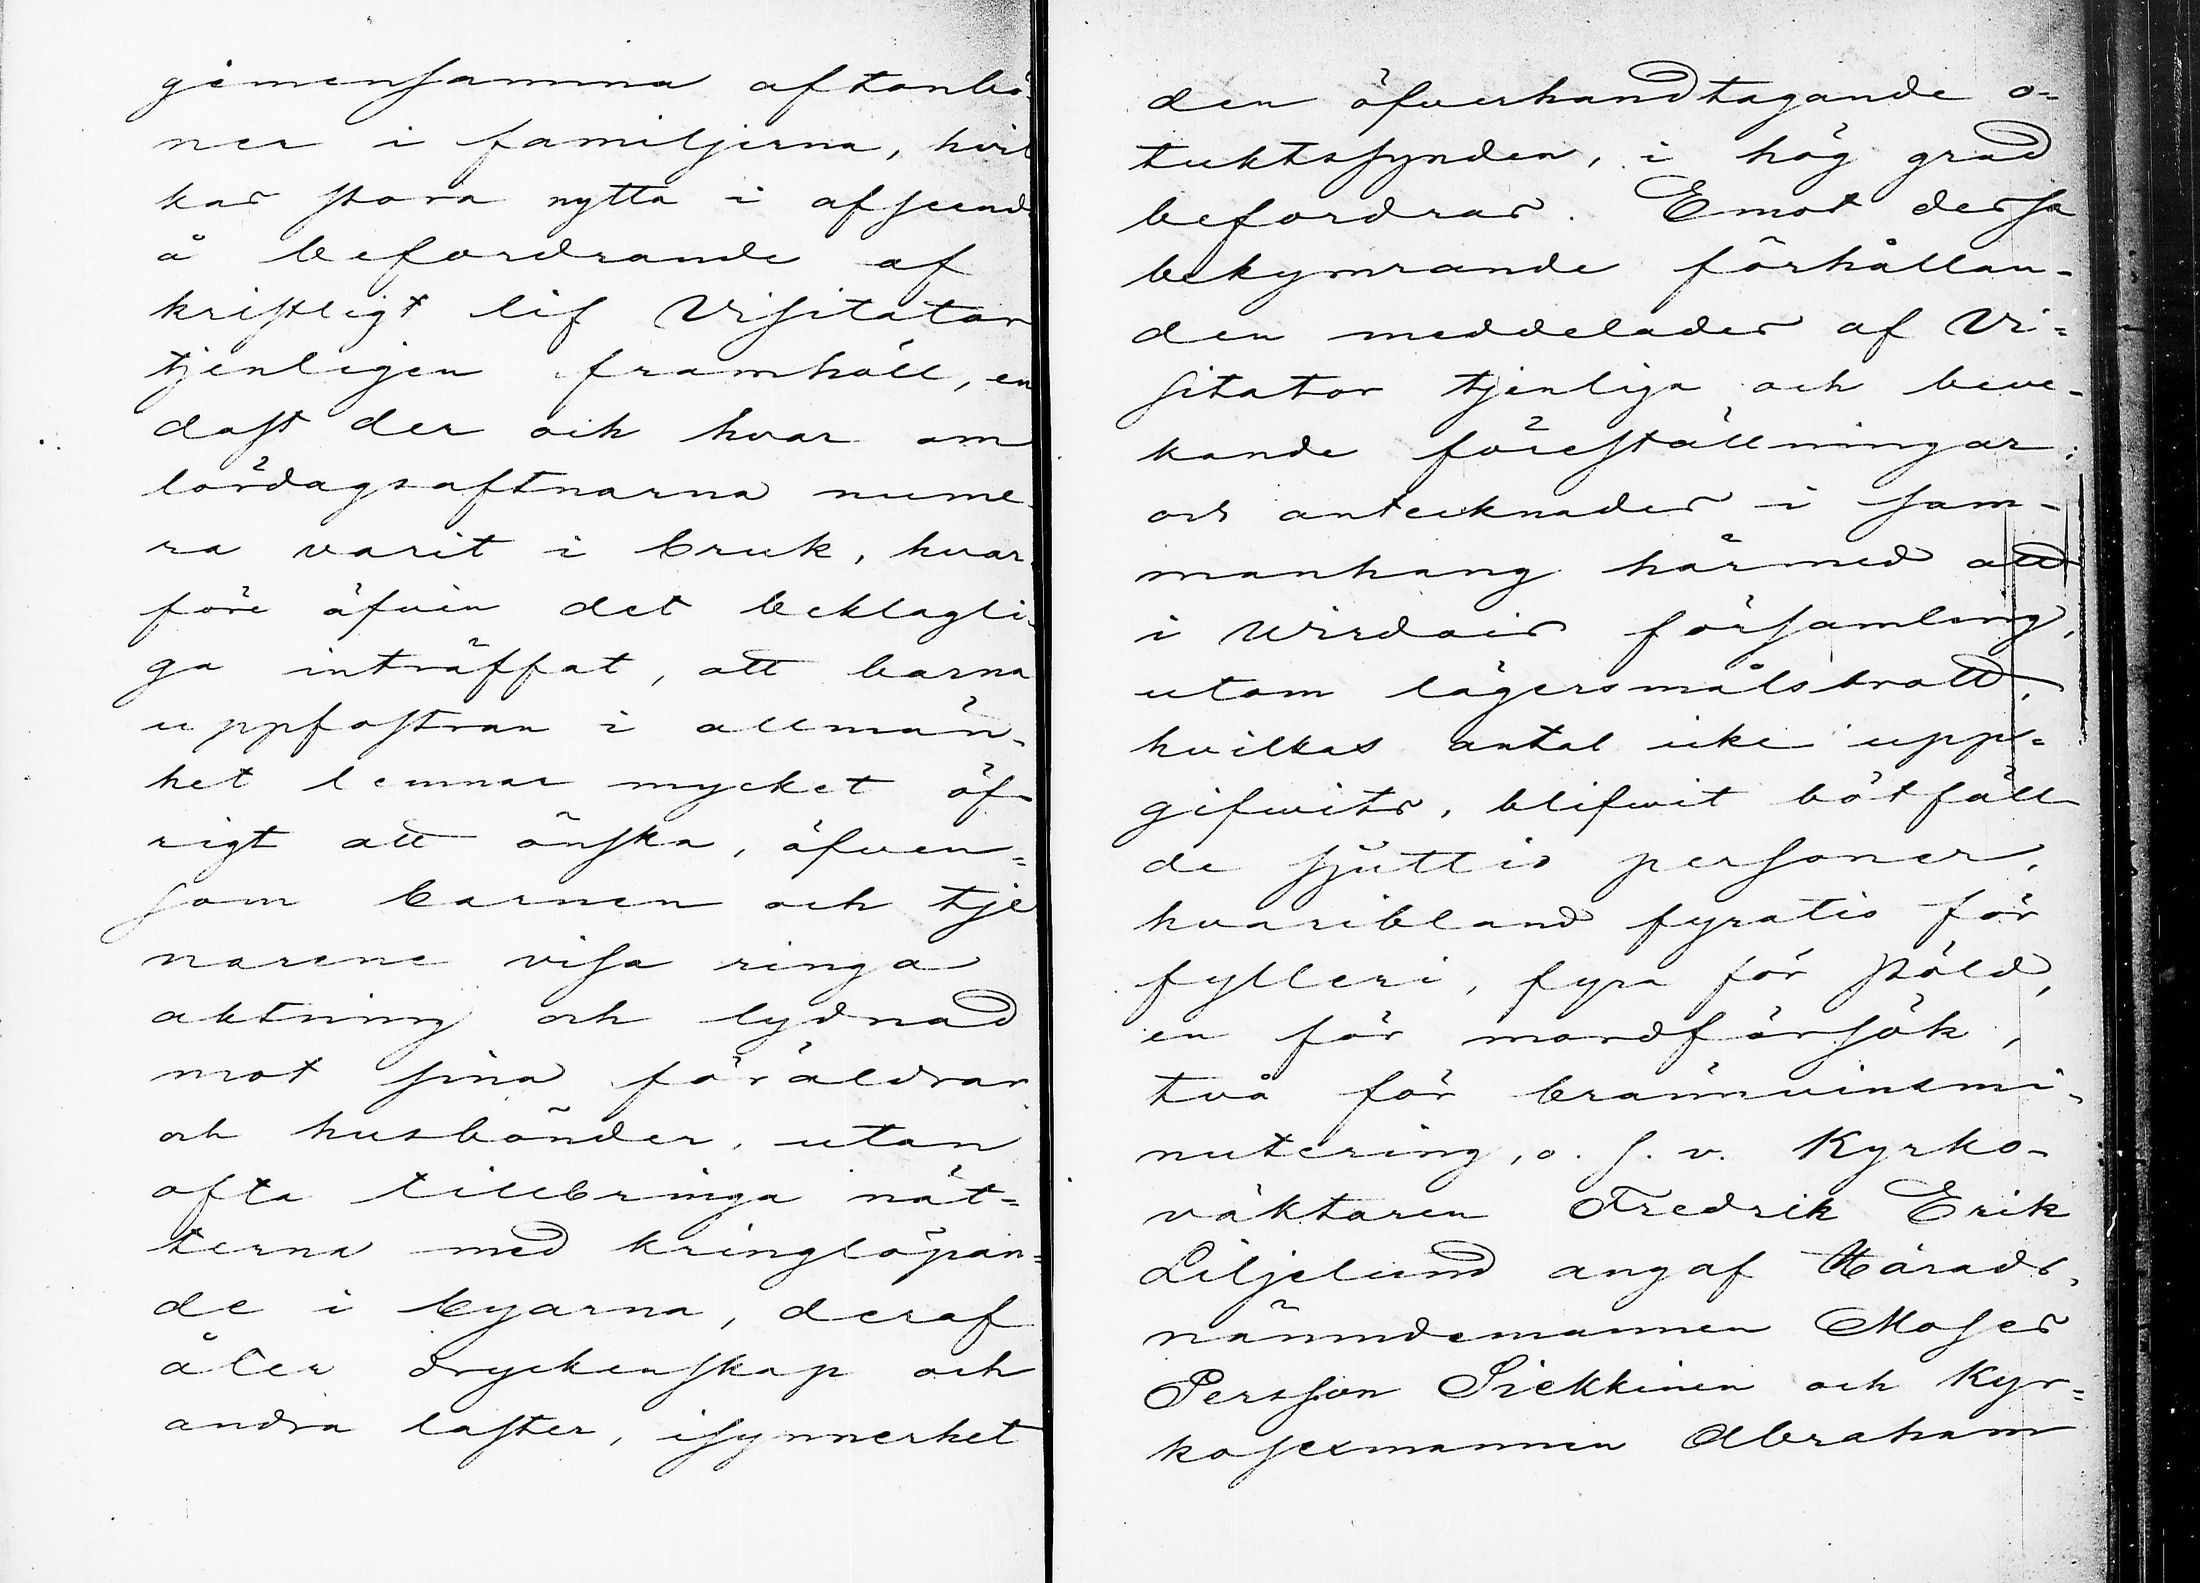 gemensamma aftonbö-
ner i familjerna, hvil
kas stora nytta i afseende
å befordrande af
kristligt lif Visitator
tjenligen framhöll, en
dast der och hvar om
lördagsaftnarna nume-
ra varit i bruk, hvar-
före äfven det beklagli-
ga inträffat, att barna
uppfostran i allmän-
het lemnar mycket öf-
rigt att önska, äfven-
som barnen och tje
narene visa ringa
aktning och lydnad
mot sina föräldrar
och husbönder, utan
ofta tillbringa nät-
terna med kringlöpan-
de i byarna, deraf
åter dryckenskap och
andra laster, isynnerhet
den öfverhandtagande o-
tuktssynden, i hög grad
befordras. Emot dessa
bekymrande förhållan-
den meddelades af Vi-
sitator tjenliga och beve-
kande föreställningar;
och antecknades i sam-
manhang härmed att
i Wirdois församling,
utom lägersmålsbrott,
hvilkas antal icke upp-
gifwits, blifwit bötfäll
de sjuttio personer,
hvaribland fyratio för
fylleri, fyra för stöld,
en för mordförsök,
två för brännvinsmi-
nutering, o. s. v. Kyrko-
väktaren Fredrik Erik
Liljelund angaf Härads-
nämndemannen Moses
Persson Siekkinen och Kyr-
kosexmannen Abraham